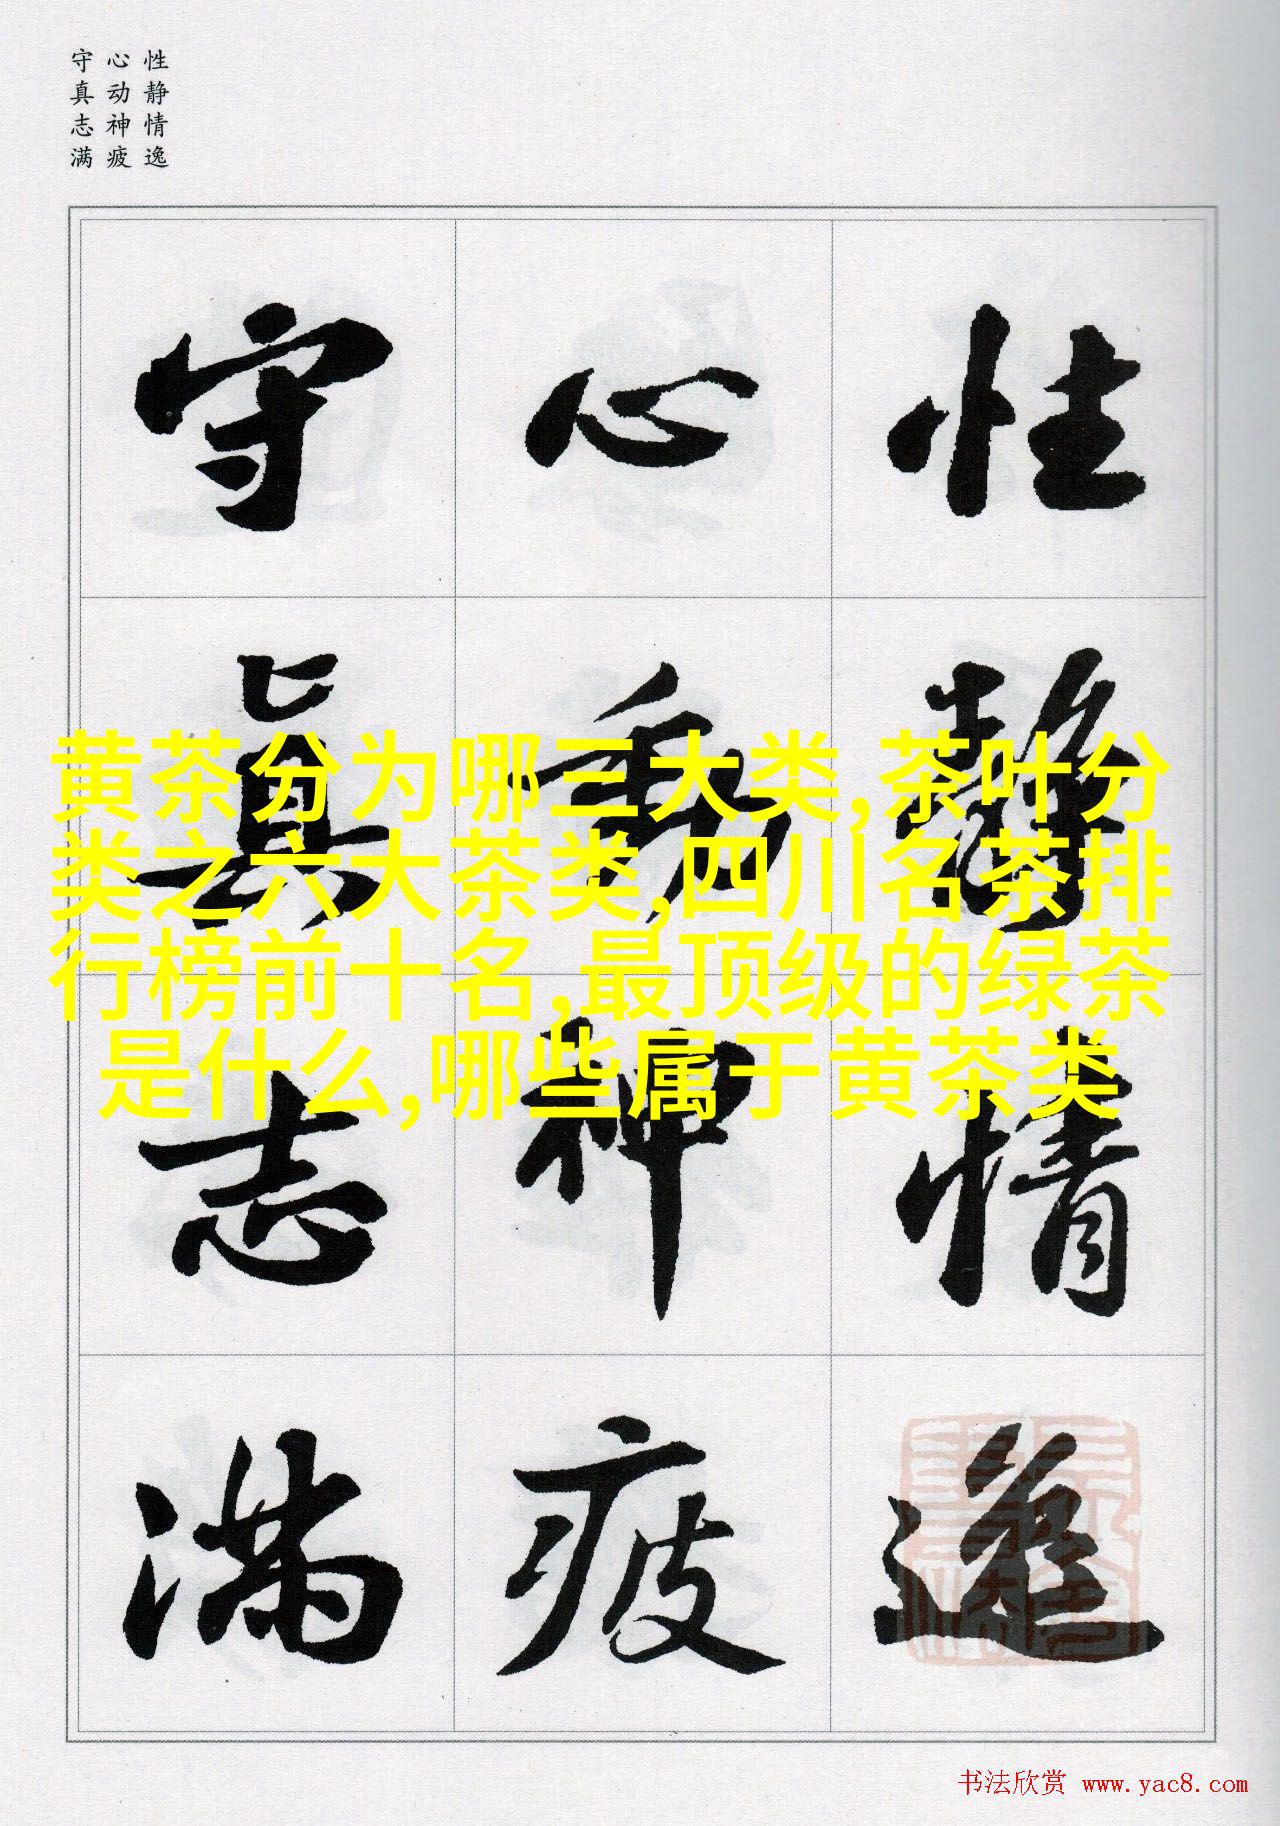 性静情逸
心动神疲
守真志满
性靜情逸
心動神疲
守真志滿
黄茶分为哪三大类,茶叶分
类之六大茶类,四川名茶排
行榜前十名,最顶级的绿茶
是什么,哪些属于黄茶类
书法欣赏 www.yac8.com